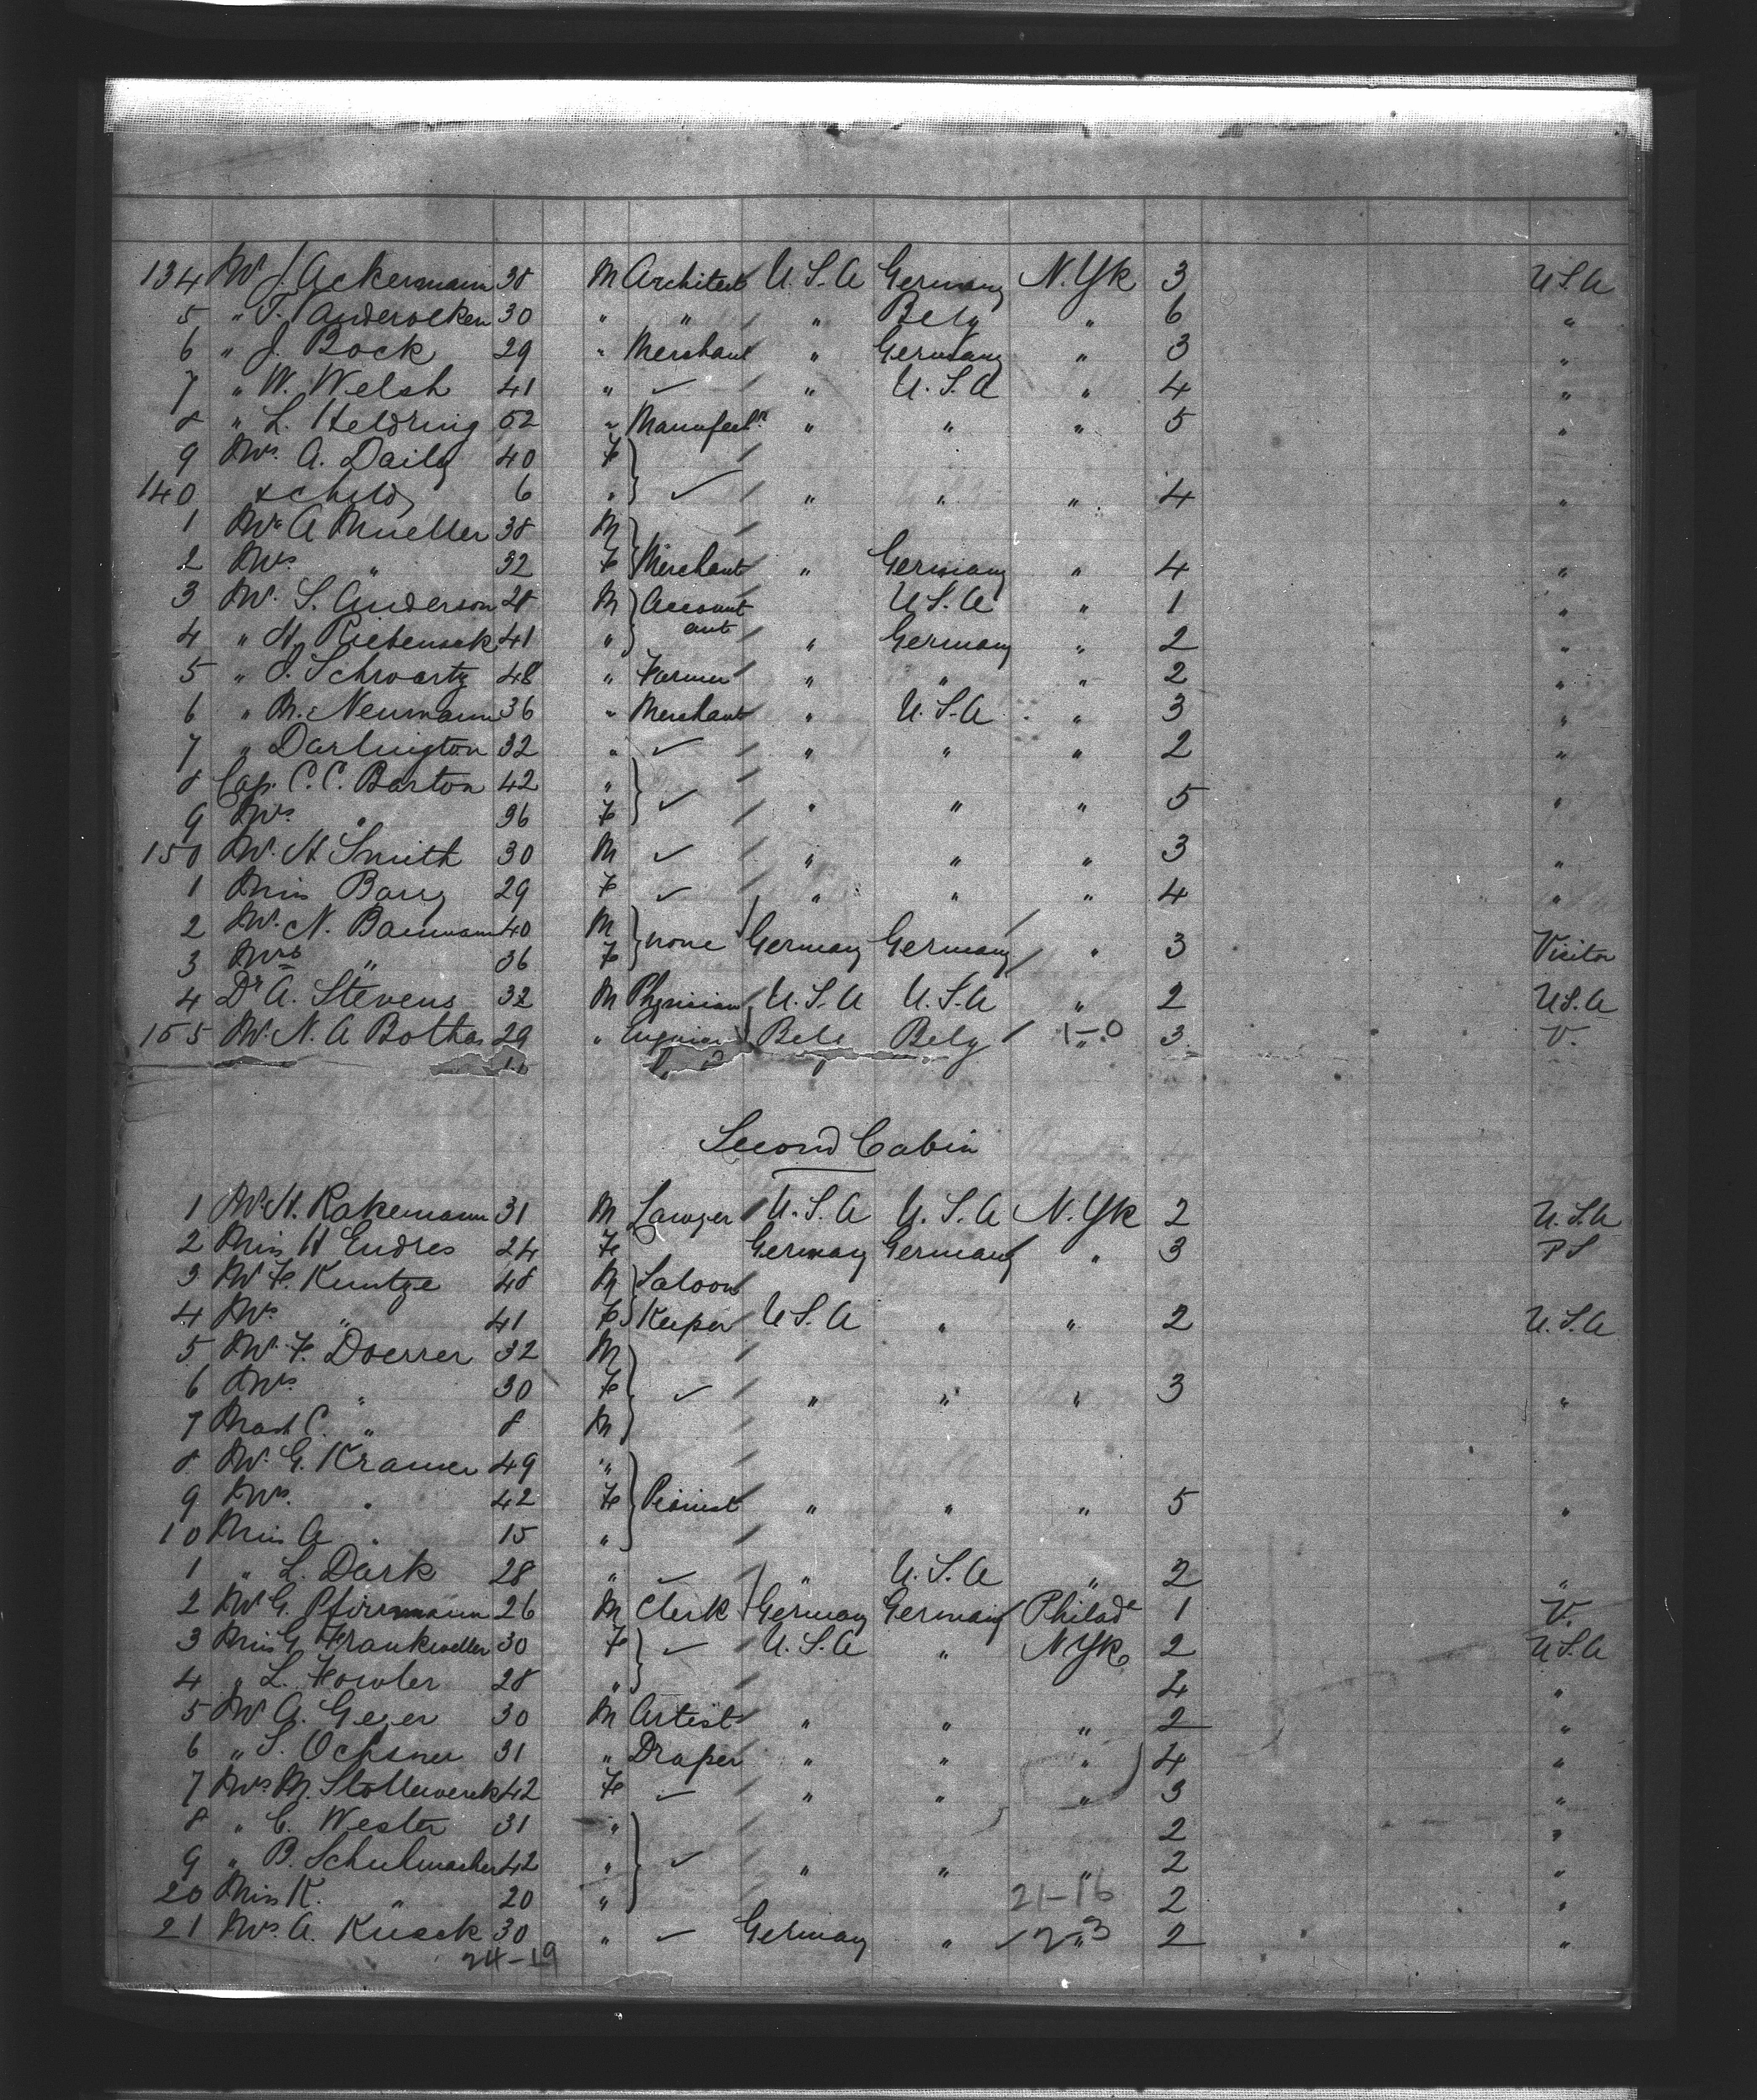 134 Mr J. Ackermann 38 M Architect U.S.A Germany N.Yk 3 U.S.A
5 " T. Vanderoeken 30 " " " Belg " 6 "
6 " J. Bock 29 " Merchant " Germany " 3 "
7 " W. Welsh 41 " ✓ " U.S.A " 4 "
8 " L. Heldring 52 " Manufactr " " " 5 "
9 Mrs A. Daily 40 F
140 & child 6 " ✓ " " " 4 "
1 Mr A Mueller 38 M
2 Mrs " 32 F Merchant " Germany " 4 "
3 Mr. S. Anderson 28 M Account U.S.A " 1 "
4 " H. Riebensack 41 " ant " Germany " 2 "
5 " J. Schwartz 48 " Farmer " " " 2 "
6 " M. Neumann 36 " Merchant " U.S.A " 3 "
7 " Darlington 32 " ✓ " " " 2 "
8 Cap. C.C. Barton 42 "
9 Mrs. " 36 F ✓ " " " 5 "
150 Mr. H Smith 30 M ✓ " " " 3 "
1 Miss Barry 29 F ✓ " " " 4 "
2 Mr. N. Baumann 40 M
3 Mrs " 36 F none Germany Germany " 3 Visitor
4 Dr A. Stevens 32 M Physician U.S.A U.S.A " 2 U.S.A
155 Mr. N. A Botha 29 " Engineer Belg " 1-0 3 V.
Second Cabin
1 Mr. H. Rakemann 31 M Lawyer U.S.A U.S.A N.Yk 2 U.S.A
2 Miss H Endres 24 F Germany Germany " 3 PS
3 Mr F. Kuntze 48 M Saloon
4 Mrs " 41 F Keeper U.S.A " " 2 U.S.A
5 Mr. F. Doerrer 32 M
6 Mrs. " 30 F ✓ " " " 3 "
7 Mast C. " 8 M
8 Mr. G. Kramer 49 "
9 Mrs. " 42 F Pianist " " " 5 "
10 Miss A " 15 "
1 " L. Dark 28 " ✓ " U.S.A " 2 "
2 Mr G. Pfirrmann 26 M Clerk Germany Germany Philade 1 V.
3 Miss G. Frankweller 30 F ✓ U.S.A " N Yk 2 U.S.A
4 " L. Fowler 28 " 4 "
5 Mr A. Geyer 30 M Artist " " " 2 "
6 " S. Ochsner 31 " Draper " " " 4 "
7 Mrs M. Stollewerck 42 F ✓ " " " 3 "
8 " C. Wester 31 " 2 "
9 " B. Schuhmacher 42 " ✓ " " " 2 "
20 Miss K. " 20 " 21-16 2 "
21 Mrs A. Knack 30 " ✓ Germany " " 2 "
24-19